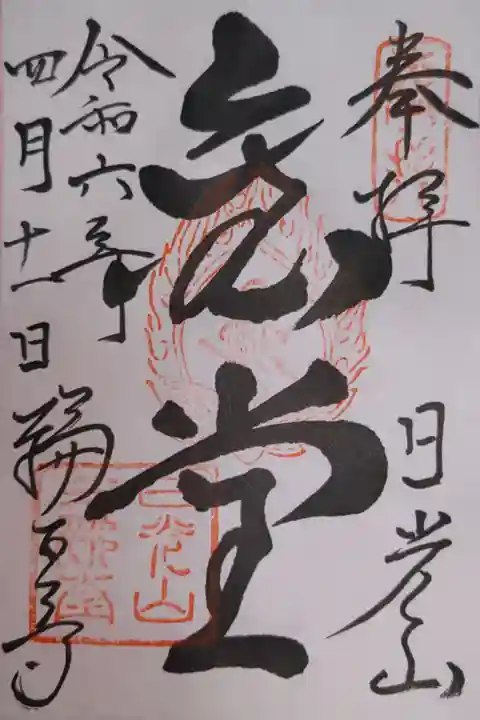 奉拝 日光山
堂
令和六年
四月十一日 輪王寺
日光山